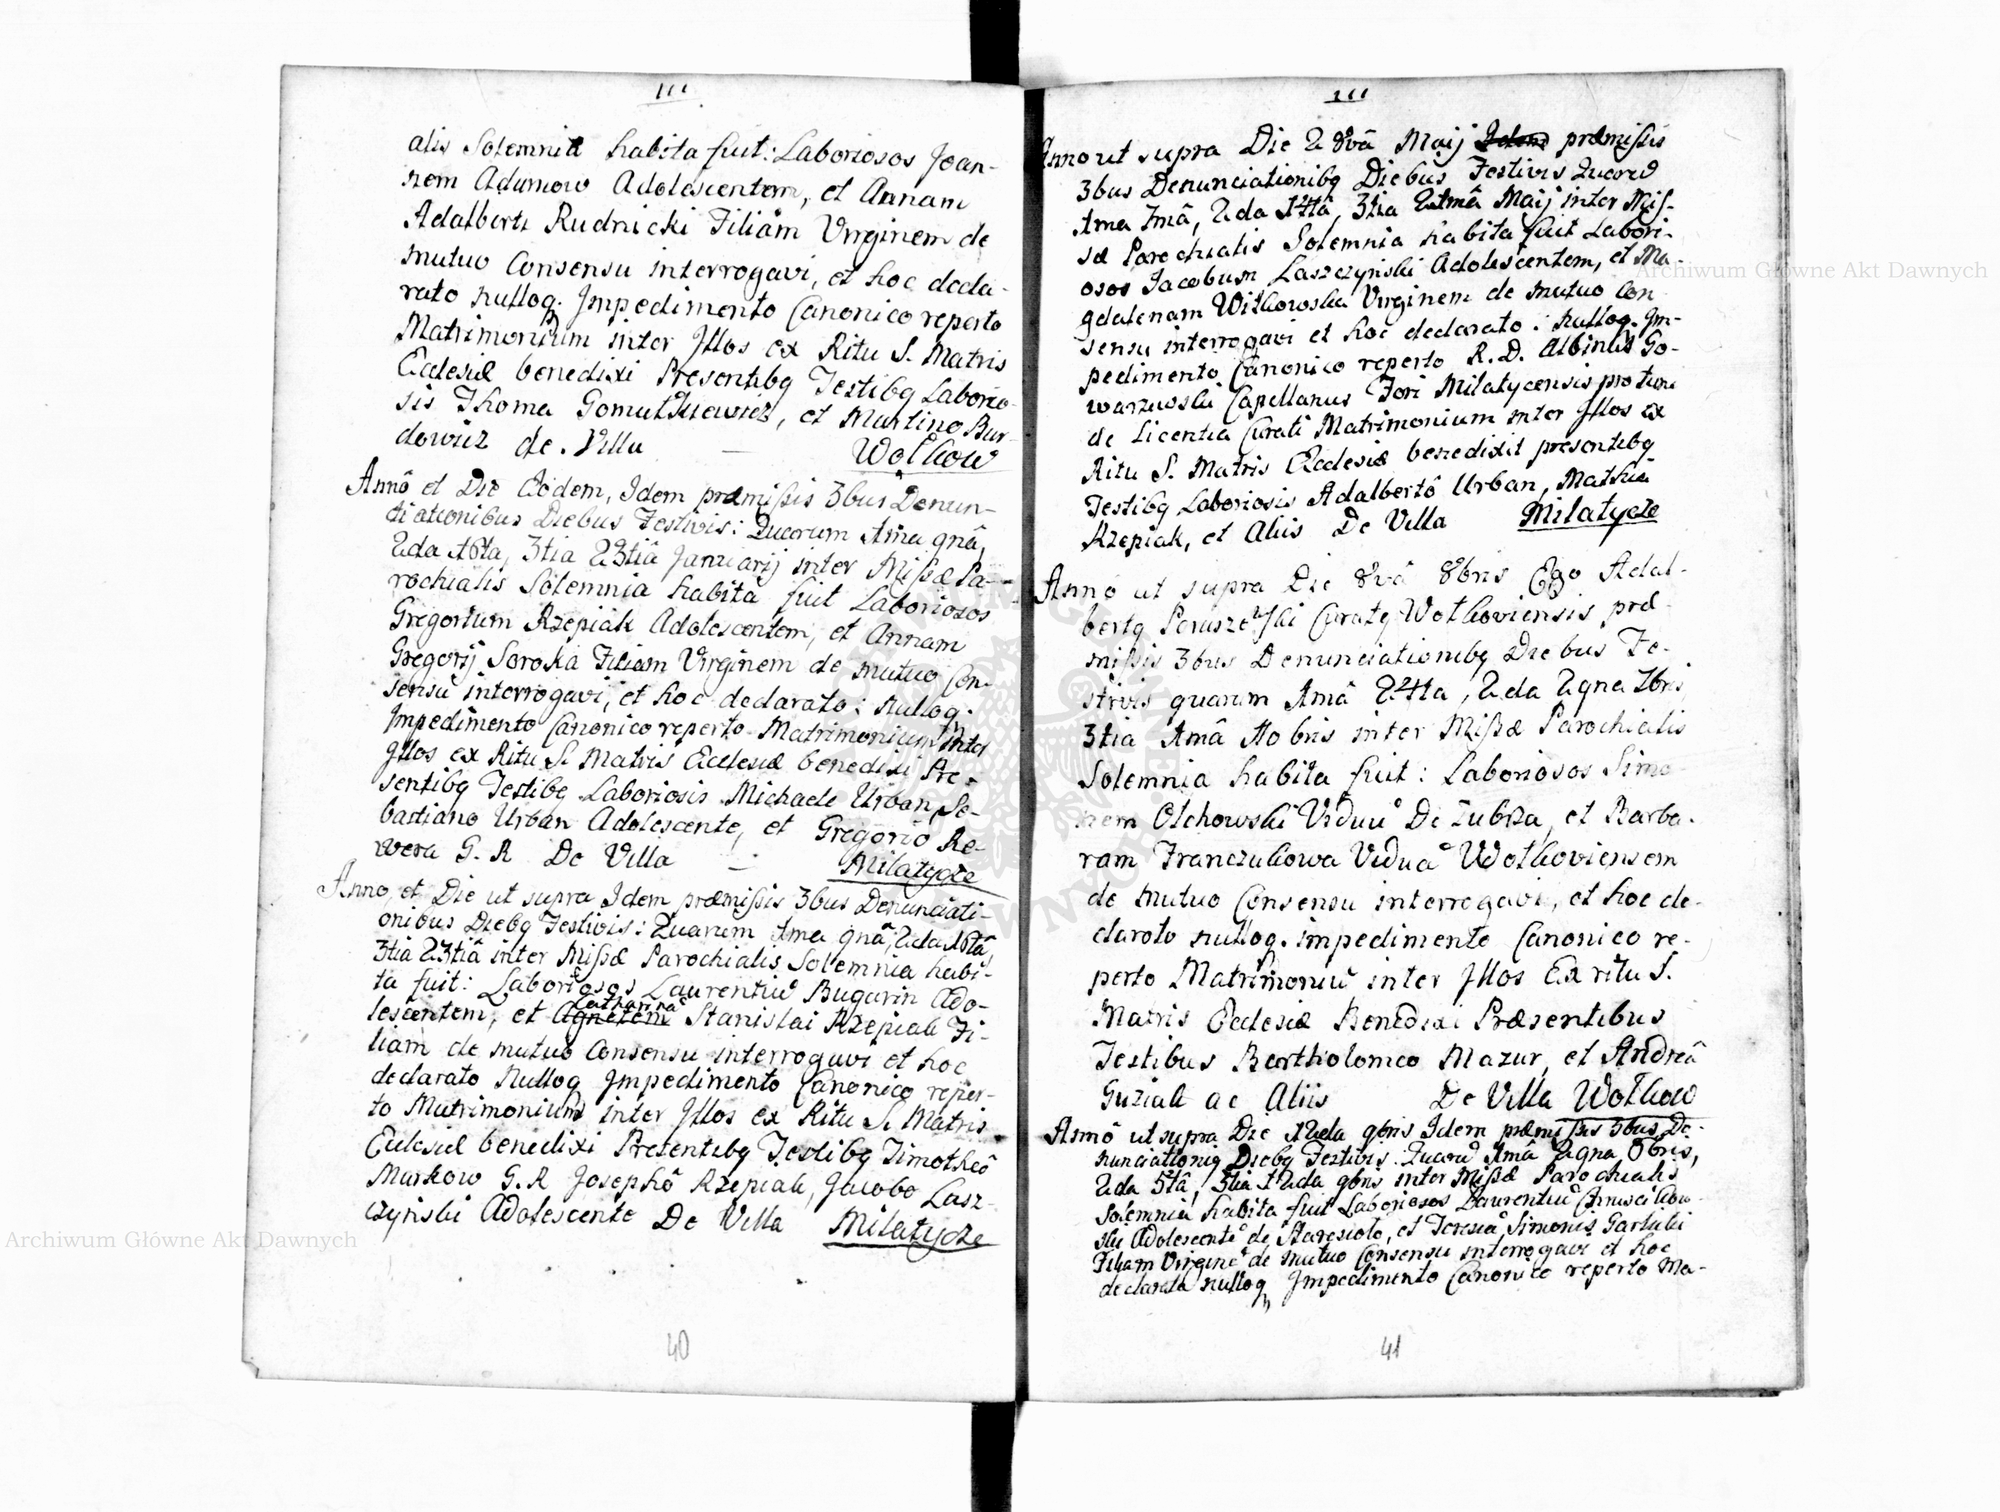 111
alis Solemnia habita fuit: Laboriosos Joan-
nem Adamow Adolescentem, et Annam
Adalberti Rudnicki Filiam Virginem de
mutuo Consensu interrogavi, et hoc decla-
rato nulloq. Impedimento Canonico reperto
Matrimonium inter Illos ex Ritu S. Matris
Ecclesiæ benedixi Presentibq Testibq Laborio-
sis Thoma Gomułkiewicz, et Martino Bur-
dowicz de Villa Wołkow
Annô et Die Eodem, Idem præmißis 3bus Denun-
tiationibus Diebus Festivis: Quorum 1ma 9nâ,
2da 16ta, 3tia 23tiâ Januarij inter Mißæ Pa-
rochialis Solemnia habita fuit Laboriosos
Gregorium Rzepiak Adolescentem, et Annam
Gregorij Soroka Filiam Virginem de mutuo Con-
sensu interrogavi, et hoc declarato: nulloq.
Impedimento Canonico reperto Matrimonium inter
Illos ex Ritu S. Matris Ecclesiæ benedixi Pre-
sentibq Testibq Laboriosis Michaele Urban, Se-
bastiano Urban Adolescente, et Gregorio Re-
wera G. R De Villa Milatycze
Anno, et Die ut supra Idem præmißis 3bus Denunciati-
onibus Diebq Festivis: Quarum 1ma 9nâ, 2da 16tâ,
3tia 23tiâ inter Mißæ Parochialis Solemnia habi-
ta fuit: Laboriosos Laurentiu Bugarin Ado-
Catharina
lescentem, et Agnetem Stanislai Rzepiak Fi-
liam de mutuo Consensu interrogavi et hoc
declarato nulloq Impedimento Canonico reper-
to Matrimonium inter Illos ex Ritu S. Matris
Ecclesiæ benedixi Presentibq Testibq Timotheô
Markow G. R Josephô Rzepiak, Jacobo Lasz-
czynski Adolescente De Villa Milatycze
40
111
Anno ut supra Die 28vâ Maij Idem præmißis
3bus Denunciationibq Diebus Festivis Quoru
1ma 1mâ, 2da 14tâ, 3tia Maij inter Miß-
sæ Parochialis Solemnia habita fuit Labori-
osos Jacobum Laszczynski Adolescentem, et Ma-
gdalenam Witkowska Virginem de mutuo Con-
sensu interrogavi et hoc declarato: nulloq. Im-
pedimento Canonico reperto R. D. Albinus Go-
warzewski Capellanus Fori Milatycensis pro tunc
de Licentia Curati Matrimonium inter Illos ex
Ritu S. Matris Ecclesiæ benedixit presentibq
Testibq Laboriosis Adalbertô Urban, Mathia
Rzepiak, et Aliis De Villa Milatycze
Annô ut supra Die 8vâ 8bris Ego Adal-
bertq Paruszewski Curatq Wołkoviensis præ-
mißis 3bus Denunciationibq Diebus Fe-
stivis quarum 1mâ 24ta, 2da 29na 7bris
3tia 1mâ 8bris inter Mißæ Parochialis
Solemnia habita fuit: Laboriosos Simo-
nem Olchowski Viduu De Zubrza, et Barba-
ram Franczukowa Vidua Wołkoviensem
de mutuo Consensu interrogavi, et hoc de-
clarato nulloq. impedimento Canonico re-
perto Matrimoniu inter Illos Ex ritu S.
Matris Ecclesiæ Benedixi Præsentibus
Testibus Bartholomeo Mazur, et Andreâ
Guziak ac Aliis De Villa Wołkow
Annô ut supra Die 12da 9bris Idem præmißis 3bus De-
nunciationiq Diebq Festivis. Quoru 1mâ 29na 8bris,
2da 5tâ, 3tia 12da 9bris inter Mißæ Parochialis
Solemnia habita fuit Laboriosos Laurentiu
ski Adolescente de Staresioło, et Teresia Simonis Garlicki
Filiam Virgine de mutuo Consensu interrogavi et hoc
declarata nulloq Impedimento Canonico reperto Ma-
41
Archiwum Główne Akt Dawnych
Archiwum Główne Akt Dawnych